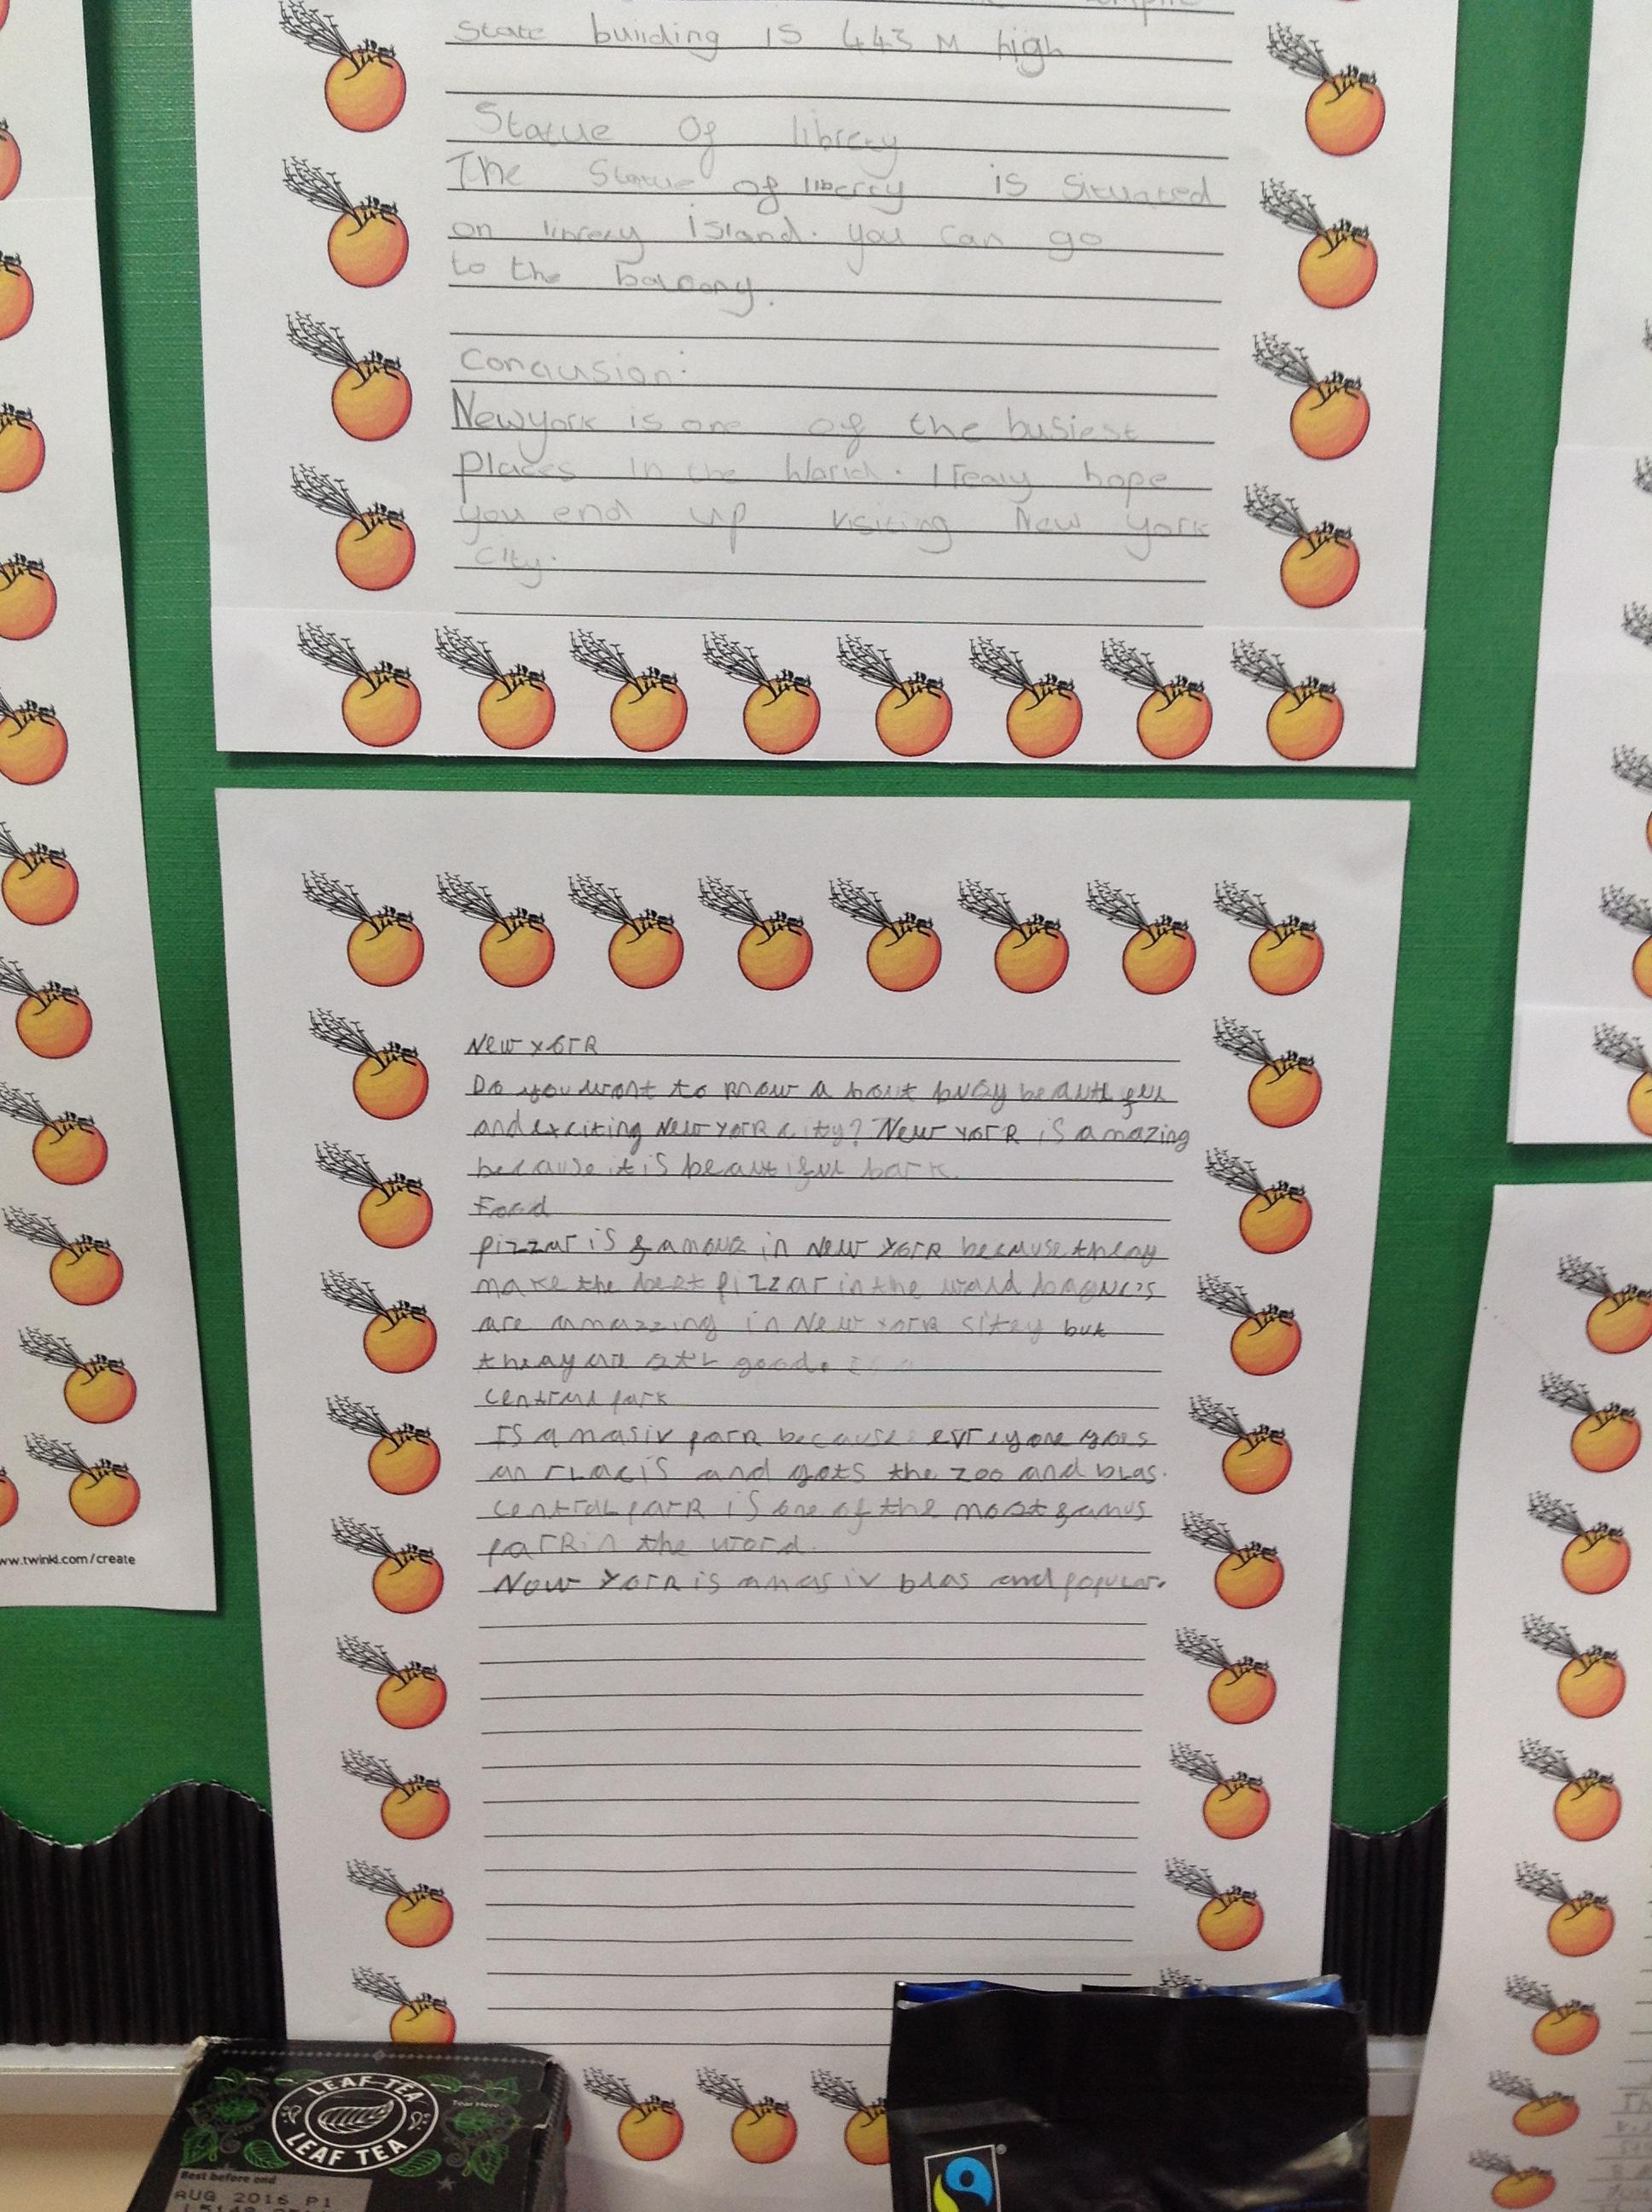 State building is 443 M high
Statue Of library
The Statue of liberty is Situated
on librery island. you can go
to the balcony.
Conclusion:
Newyork is one of the busiest
Places in the World. I realy hope
you end up visiting New York
City.
New YorR
Do you wont to Rnow a bout busy beautiful
and exciting New YorR city? New YorR is amazing
because it is beautiful park.
Food
pizzar is famous in New YorR because theay
make the best pizzar in the world
are amazzing in New YorR sitey but
theay are good.
central park
Is a masiv parR because evreyone goes
and gots the zoo and
central parR is one of the most famus
parR in the word.
Now YorR is a masiv and popular.
www.twinkl.com/create
LEAF TEA
LEAF TEA
Tear Here
Best before end
AUG 2016 P1